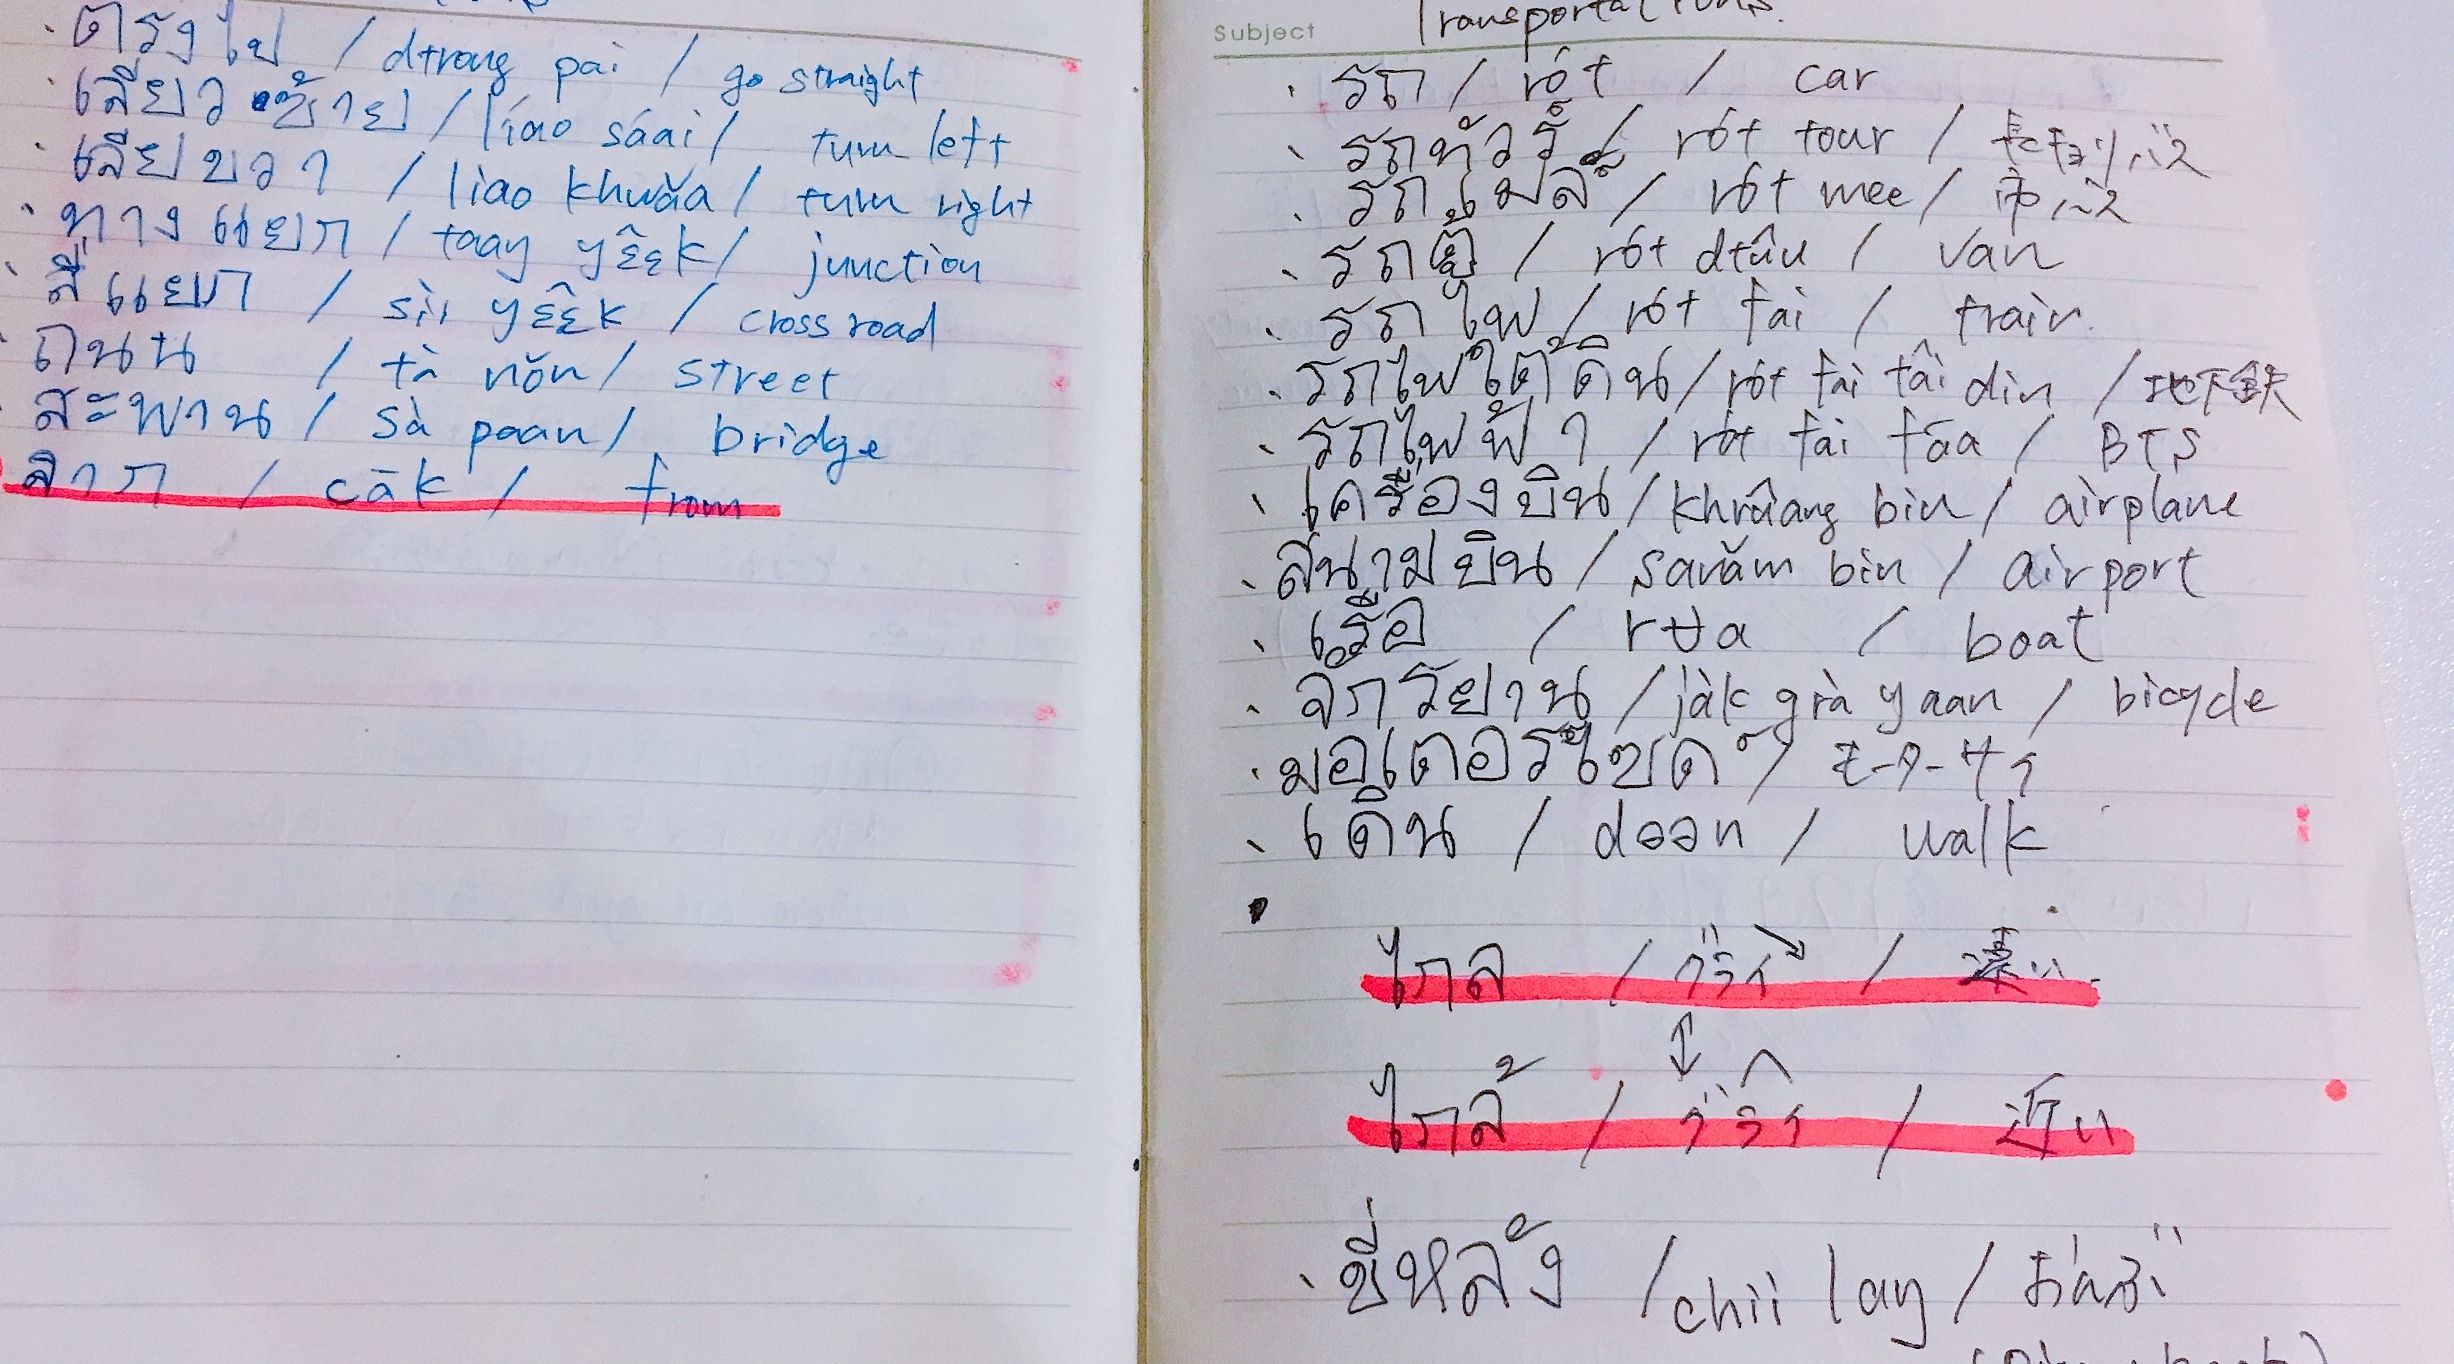 ตรงไป / dtrong pai / go straight
เลี้ยวซ้าย / líao sáai / turn left
เลียบขวา / líao khwǎa / turn right
ทางแยก / taaŋ yɛ̂ɛk / junction
สี่แยก / sìi yɛ̂ɛk / cross road
ถนน / tà nǒn / street
สะพาน / sà paan / bridge
จาก / cāk / from
Subject Transportations.
รถ / rót / car
รถทัวร์ / rót tour / 長距離バス
รถเมล์ / rót mee / 市バス
รถตู้ / rót dtûu / van
รถไฟ / rót fai / train.
รถไฟใต้ดิน / rót fai tâi din / 地下鉄
รถไฟฟ้า / rót fai fāa / BTS
เครื่องบิน / khrʉ̂ang bin / airplane
สนามบิน / sanǎm bin / airport
เรือ / rʉa / boat
จักรยาน / jàk grà yaan / bicycle
มอเตอร์ไซด์ / モーターサイ
เดิน / dəən / walk
ไกล / グライ / 遠い
ไกล้ / グライ / 近い
ขี่หลัง / chii laŋ / おんぶ